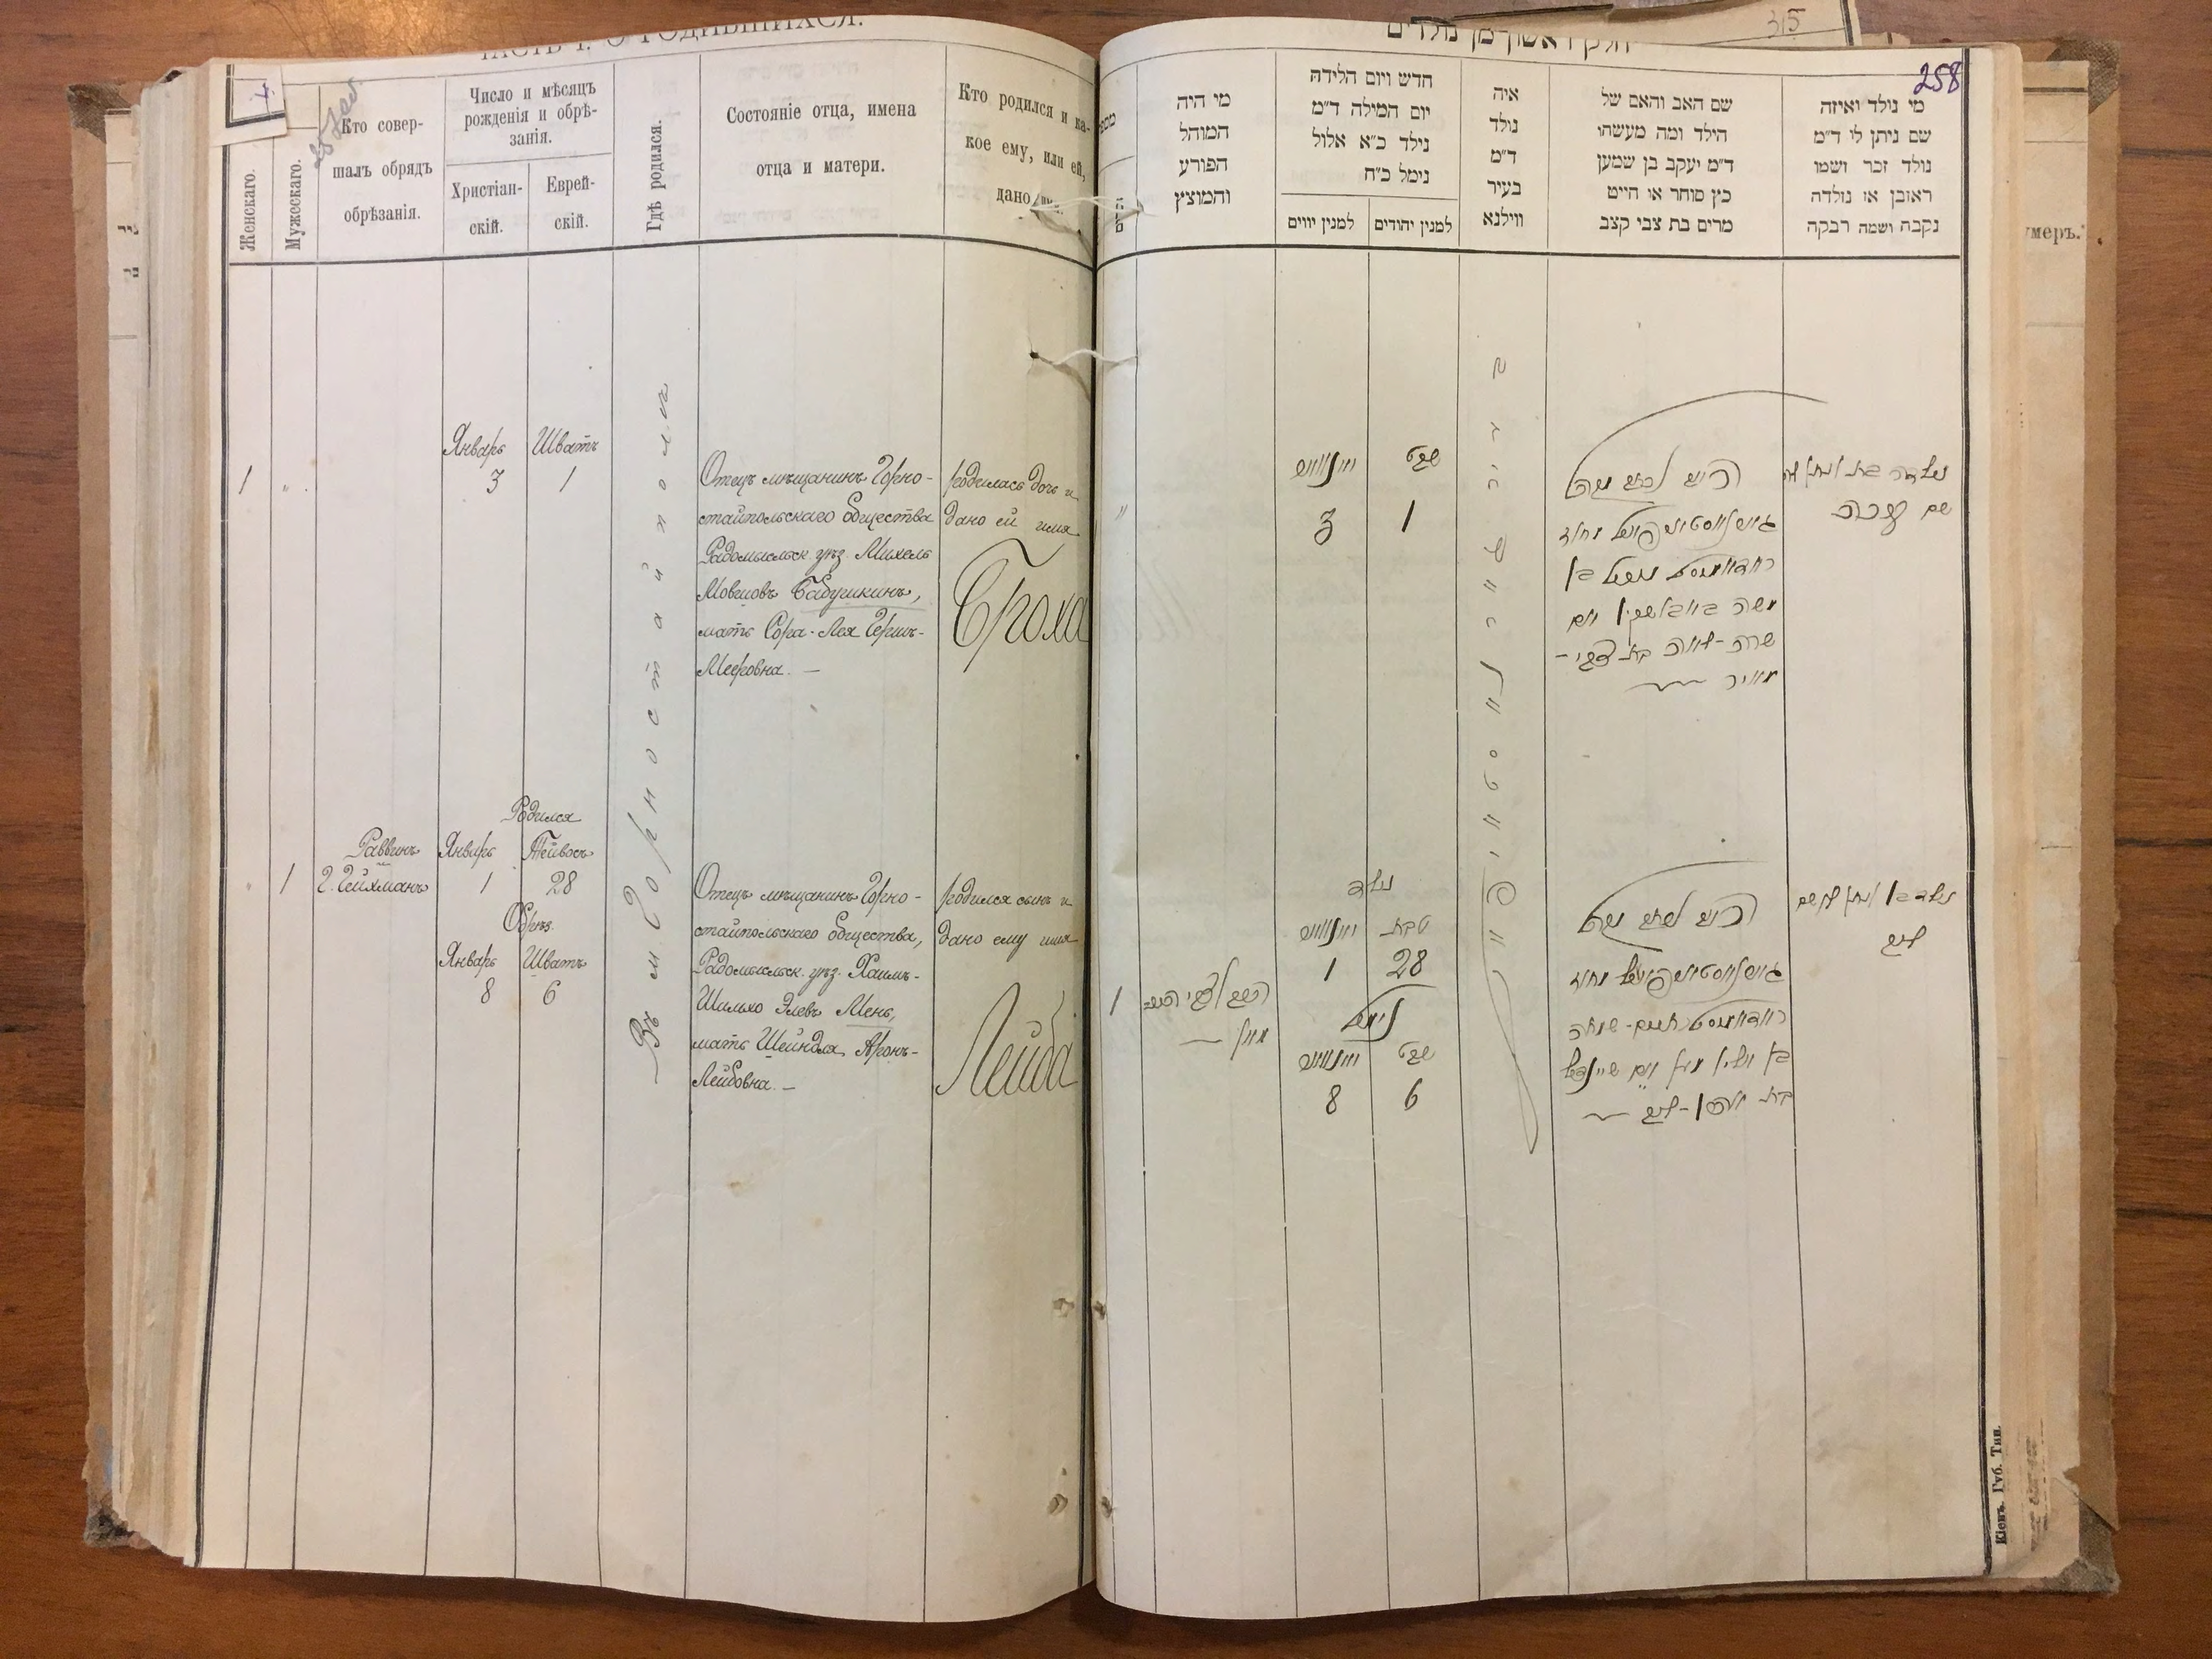 ЧАСТЬ I. О РОДИВШИХСЯ.
Женскаго.
Мужескаго.
Кто совер-
шалъ обрядъ
обрѣзанія.
Число и мѣсяцъ
рожденія и обрѣ-
занія.
Христіан-
скій.
Еврей-
скій.
Гдѣ родился.
Состояніе отца, имена
отца и матери.
Кто родился и ка-
кое ему, или ей,
дано
1
"
Январь
3
Шватъ
1
Въ м. Горностайполѣ
Отецъ мѣщанинъ Горно-
стайпольскаго общества
Радомысльск. уѣз. Михель
Мовшовъ Бабушкинъ,
мать Сора-Лея Герш-
Мееровна. —
родилась дочь и
дано ей имя
Броха
1
Раввинъ
Г. Гейхманъ
Родился
Январь
1
Тейвосъ
28
Обрѣз.
Январь
8
Шватъ
6
Отецъ мѣщанинъ Горно-
стайпольскаго общества,
Радомысльск. уѣз. Хаимъ-
Шимхо Элевъ Мень,
мать Шейндля Аронъ-
Лейбовна. —
родился сынъ и
дано ему имя
Лейба
חלק ראשון מן נולדים
315
258
מי היה
המוהל
הפורע
והמוצץ
חדש ויום הלידה
יום המילה ד"מ
נילד כ"א אלול
נימל כ"ח
למנין יווים
למנין יהודים
איה
נולד
ד"מ
בעיר
ווילנא
שם האב והאם של
הילד ומה מעשתו
ד"מ יעקב בן שמען
כץ סוחר או חייט
מרים בת צבי קצב
מי נולד ואיזה
שם ניתן לי ד"מ
נולד זכר ושמו
ראובן או נולדה
נקבה ושמה רבקה
"
3
שבט
1
משה באבושקין ואם
שרה-לאה בת צבי-
מאיר
נולדה בת וניתן לה
שם ברכה
1
נולד
1
טבת
28
נימול
8
שבט
6
בת אהרן-לייב
נולד בן וניתן לו שם
לייב
умеръ.
Кіевъ. Губ. Тип.